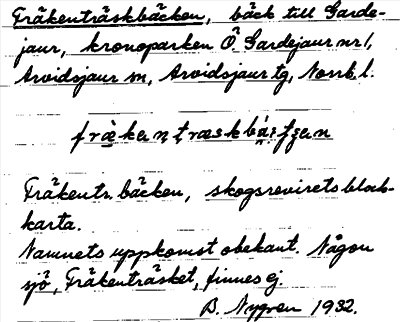 Fräkenträskbäcken, bäck till Garde-
jaur, kronoparken Ö. Gardejaur nr 1,
Arvidsjaur sn, Arvidsjaur tg, Norrb. l.
Fräkentr.bäcken, skogsrevirets block-
karta.
Namnets uppkomst obekant. Någon
sjö, Fräkenträsket, finnes ej.
B. Nygren 1932.